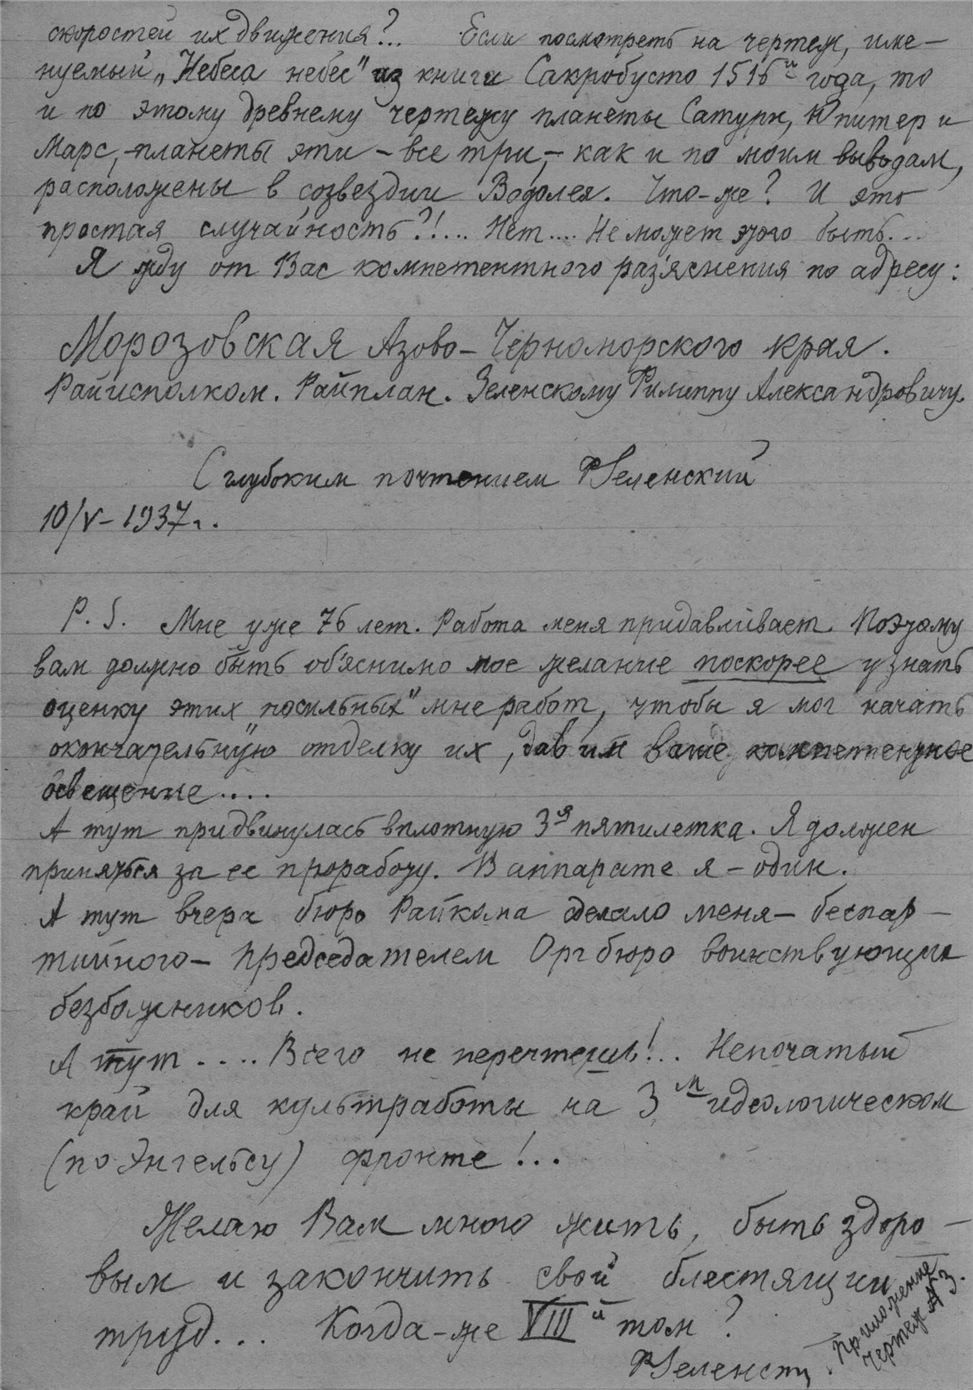 скоростей их движения?... Если посмотреть на чертеж, име-
нуемый „Небеса небес" из книги Сакробусто 1516й года, то
и по этому древнему чертежу планеты Сатурн, Юпитер и
Марс, – планеты эти – все три, – как и по моим выводам,
расположены в созвездии Водолея. Что-же? И это
простая случайность?!... Нет.... Не может этого быть...
Я жду от Вас компетентного раз'яснения по адресу:
Морозовская Азово-Черноморского края.
Райисполком. Райплан. Зеленскому Филиппу Александровичу.
С глубоким почтением ФЗеленский
10/V-1937г.
P.S. Мне уже 76 лет. Работа меня придавливает. Поэтому
вам должно быть об'яснимо мое желание поскорее узнать
оценку этих „посильных" мне работ, чтобы я мог начать
окончательную отделку их, дав им ваше компетентное
освещение....
А тут придвинулась вплотную 3я пятилетка. Я должен
приняться за ее проработу. В аппарате я – один.
А тут вчера бюро Райкома сделало меня – беспар-
тийного – председателем Оргбюро воинствующих
безбожников.
А тут.... Всего не перечтешь!.. Непочатый
край для культработы на 3м идеологическом
(по Энгельсу) фронте!...
Желаю Вам много жить, быть здоро-
вым и закончить свой блестящий
труд... Когда-же VIIIй том?
ФЗеленск
Приложение
чертеж №3.